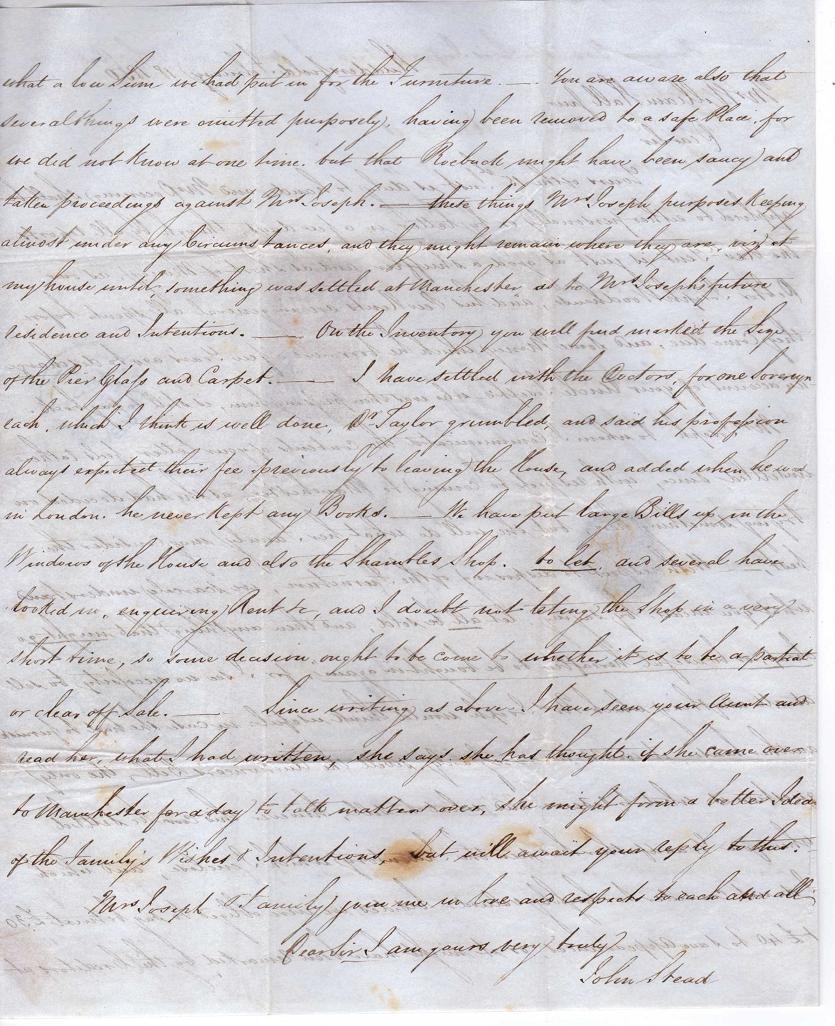 what a low Sum we had put in for the Furniture. — You are aware also that
several things were omitted purposely, having been removed to a safe Place, for
we did not know at one time. but that Roebuck might have been, saucy and
taken proceedings against Mrs. Joseph. — these things Mrs. Joseph purposes keeping
almost under any Circumstances, and they might remain where they are, viz at
my house until, something was settled at Manchester as to Mrs Joseph's future
residence and Intentions. — On the Inventory you will find marked the Size
of the Pier Glass and Carpet. — I have settled with the Doctors, for one Sovereyn
each, which I think is well done, Dr Taylor grumbled, and said his profession
always expect their fee previously to leaving the House, and added when he was
in London. he never kept any Books. — We have put large Bills up, in the
Windows of the House and also the Shambles Shop. to let, and several have
looked in, enquiring Rent &c, and I doubt not leting the Shop in a very
short time, so some decision ought to be come to whether it is to be a partial
or clear off Sale. — Since writing as above I have seen your Aunt and
read her, what I had written, she says she has thought. if she came over
to Manchester for a day to talk matters over, she might form a better Idea
of the Family's Wishes & Intentions, but will await your reply to this.
Mrs Joseph & Family join me in love and respects to each and all
Dear Sir I am yours very truly
John Stead